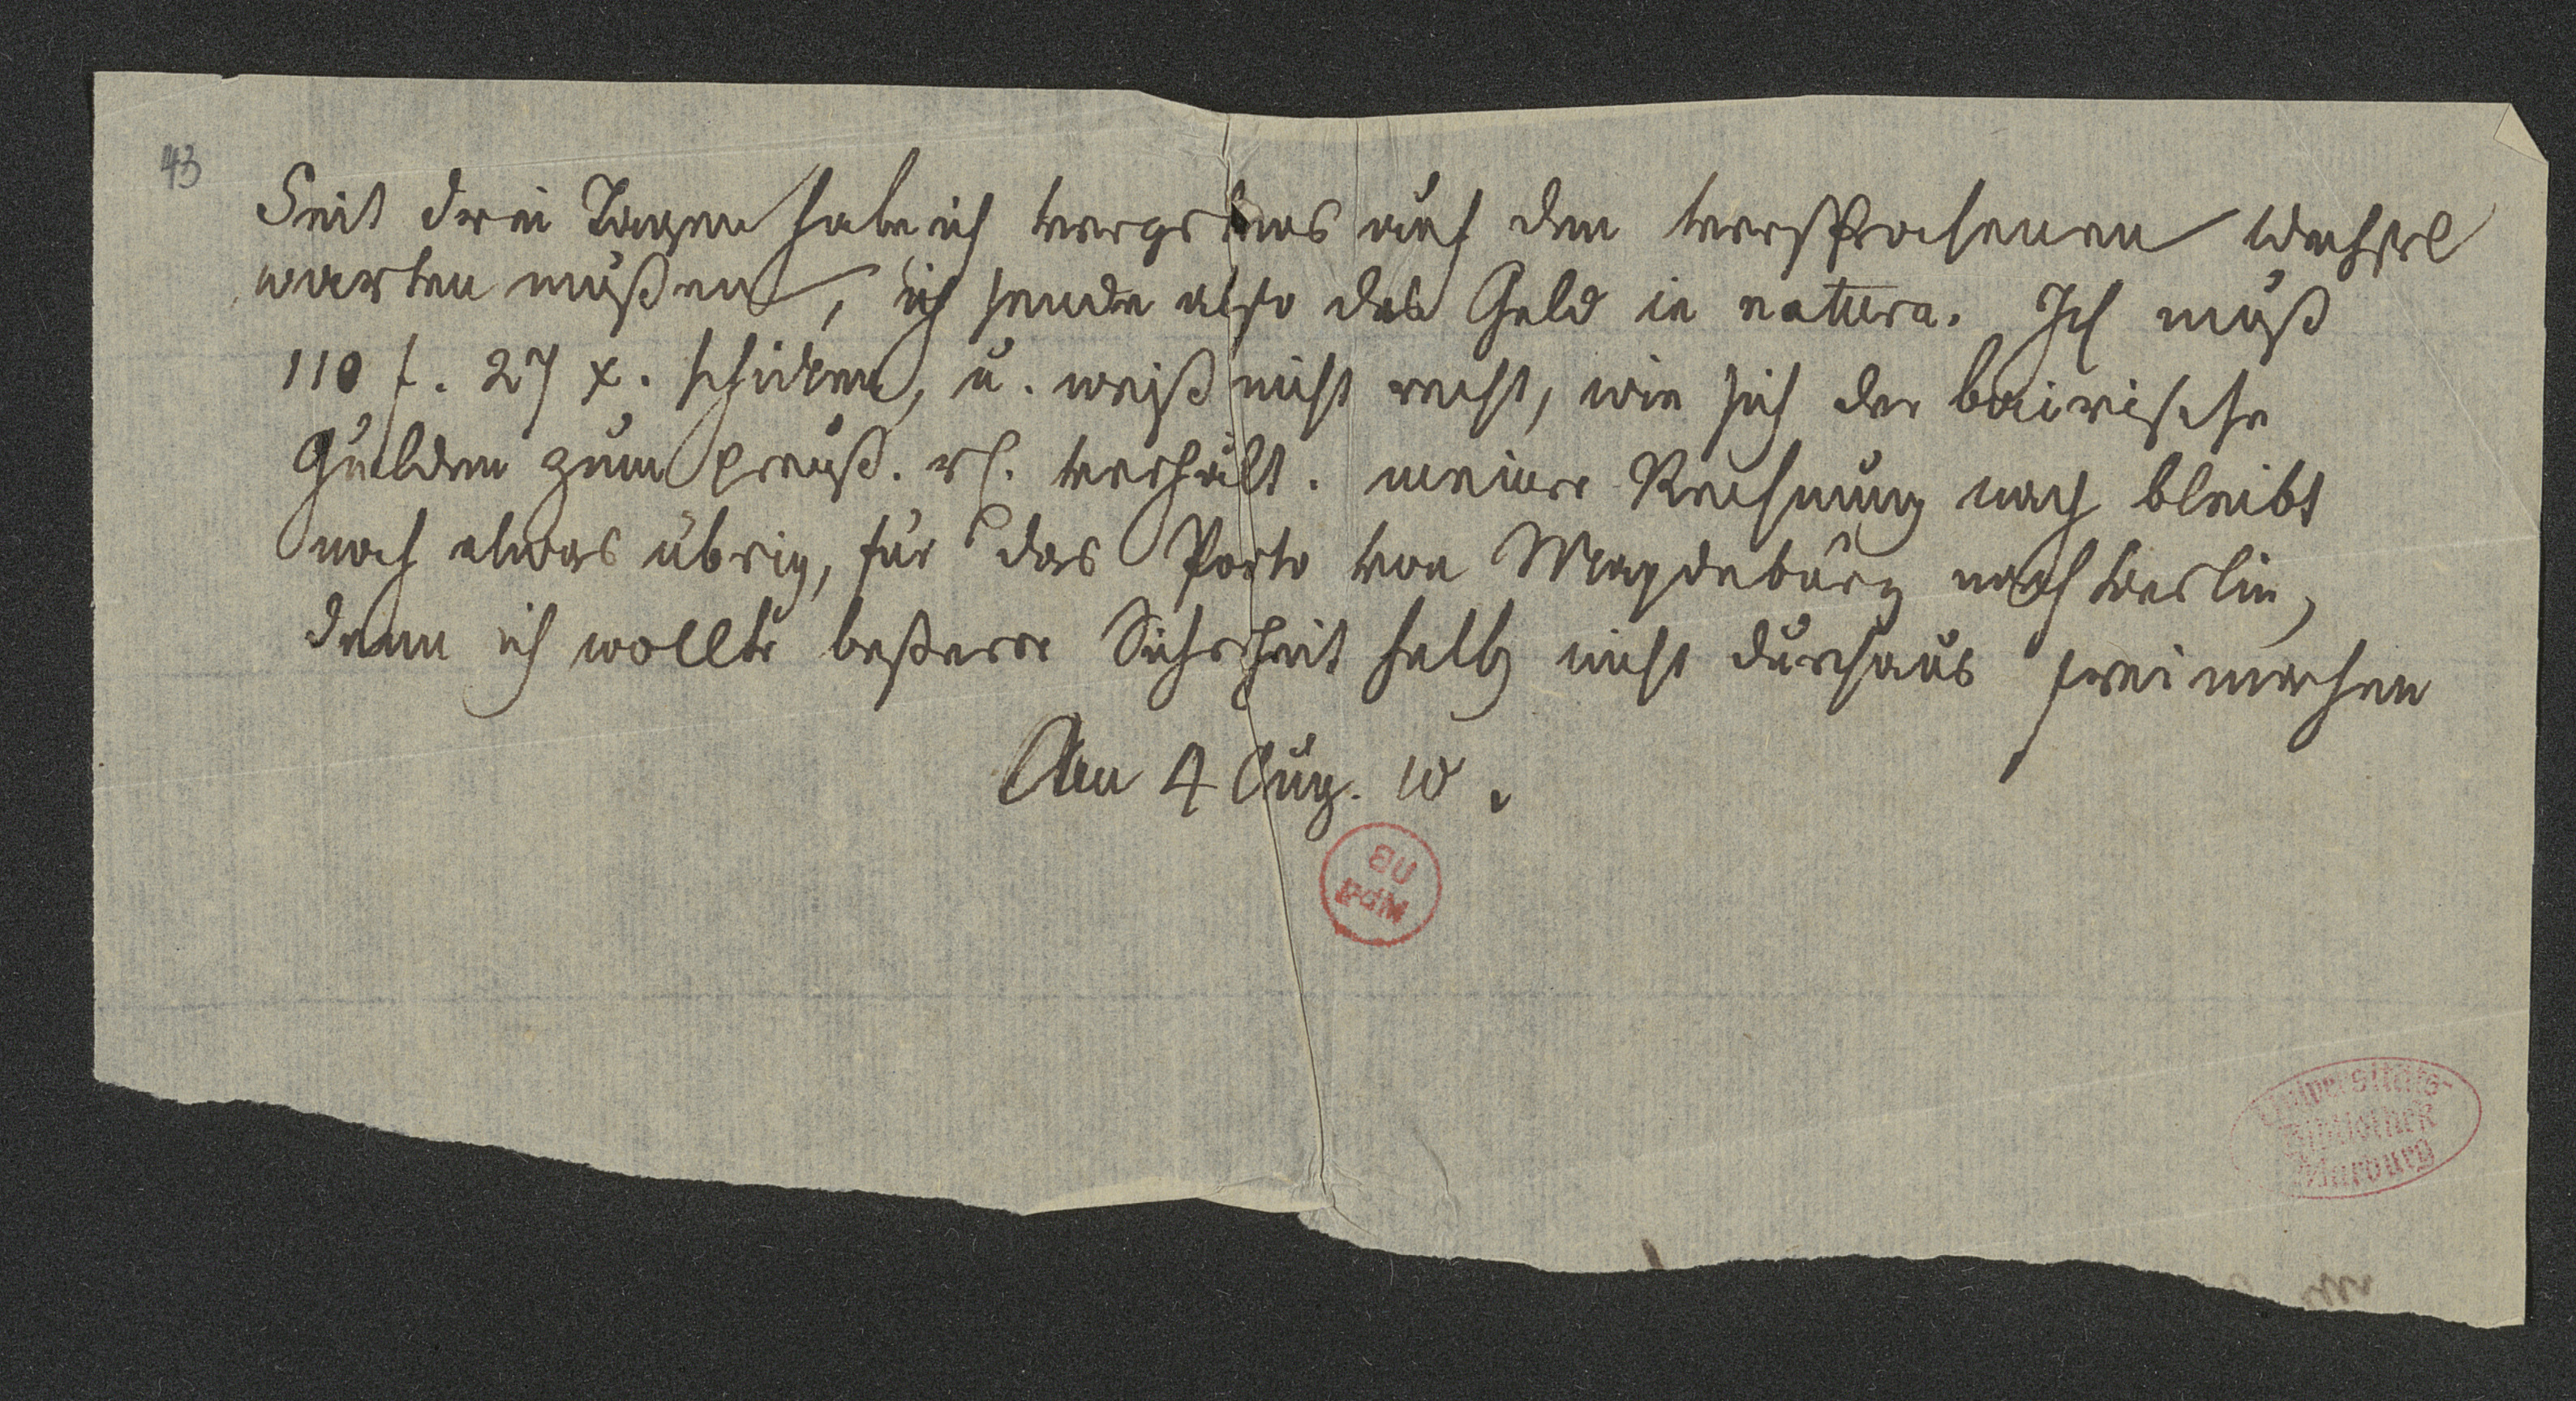 43
Seit drei Tagen habe ich vergebens auf den versprochenen Wechsel
warten müßen, ich sende also das Geld in natura. Ich muß
110 f. 27 x. schicken, u. weiß nicht recht, wie sich der bairische
Gulden zum preuß. rl. verhält. meiner Rechnung nach bleibt
noch etwas übrig, für das Porto von Magdeburg nach Berlin,
denn ich wollte beßerer Sicherheit halb nicht durchaus frei machen
Am 4 Aug. 10.
UB
Mbg
Universitäts-
Bibliothek
Marburg